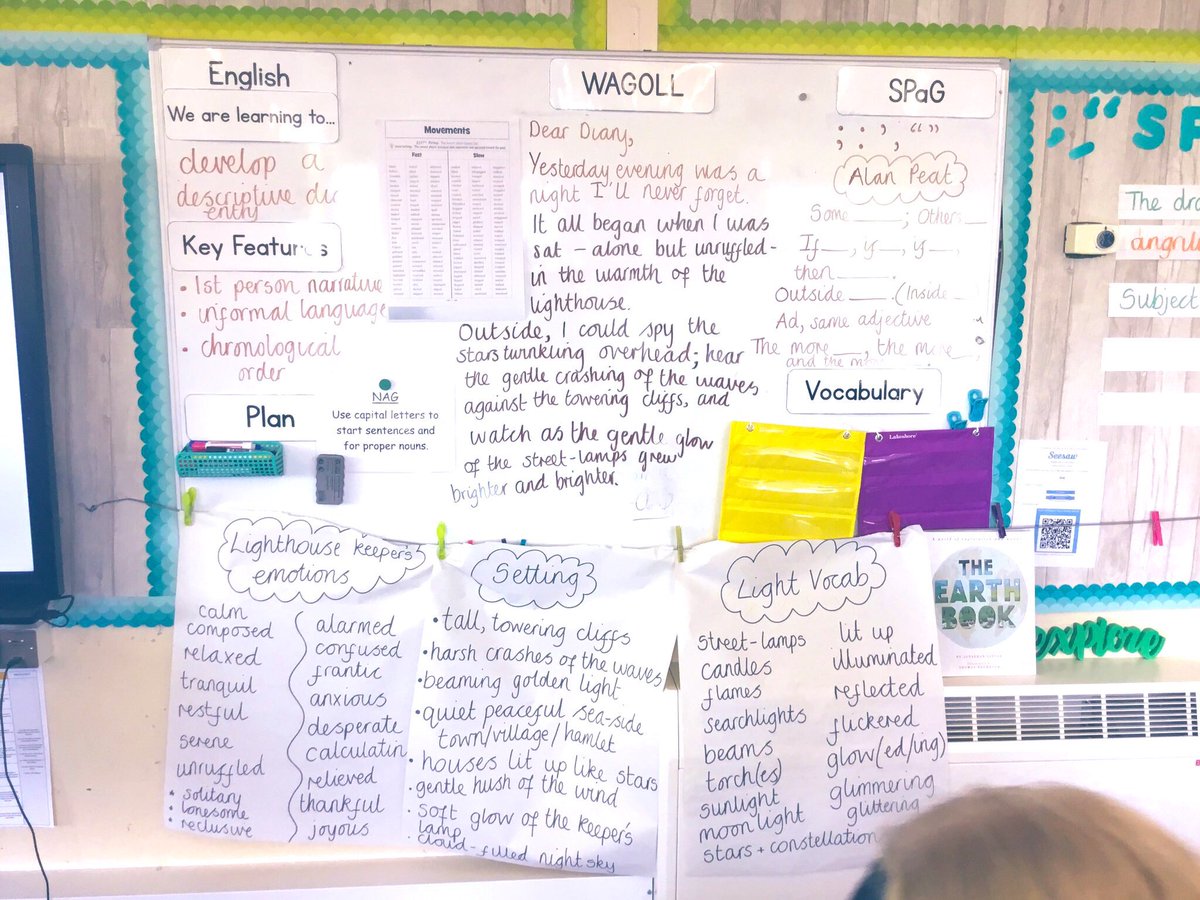 English
We are learning to...
develop a
descriptive
entry
Key Features
• 1st person narrative
• informal language
• chronological
order
Plan
Movements
Fast Slow
NAG
Use capital letters to
start sentences and
for proper nouns.
WAGOLL
Dear Diary,
Yesterday evening was a
night I'll never forget.
It all began when I was
sat – alone but unruffled –
in the warmth of the
lighthouse.
Outside, I could spy the
stars twinkling overhead; hear
the gentle crashing of the waves
against the towering cliffs, and
watch as the gentle glow
of the street-lamps grew
brighter and brighter.
SPaG
; : , “ ”
Alan Peat
Some ___; Others ___
If ___, y ___, y ___,
then ___.
Outside ___. (Inside ___
Ad, same adjective
The more ___, the more ___,
and the
Vocabulary
Lakeshore
The
Subject
Seesaw
Lighthouse keeper's
emotions
calm
composed
relaxed
tranquil
restful
serene
unruffled
• solitary
• lonesome
• reclusive
alarmed
confused
frantic
anxious
desperate
calculatin
relieved
thankful
joyous
Setting
• tall, towering cliffs
• harsh crashes of the waves
• beaming golden light
• quiet peaceful sea-side
town/village/hamlet
• houses lit up like stars
• gentle hush of the wind
• soft glow of the keeper's
lamp
• cloud-filled night sky
Light Vocab
street-lamps
candles
flames
searchlights
beams
torch(es)
sunlight
moonlight
stars + constellation
lit up
illuminated
reflected
flickered
glow(ed/ing)
glimmering
glittering
THE
EARTH
BOOK
explore